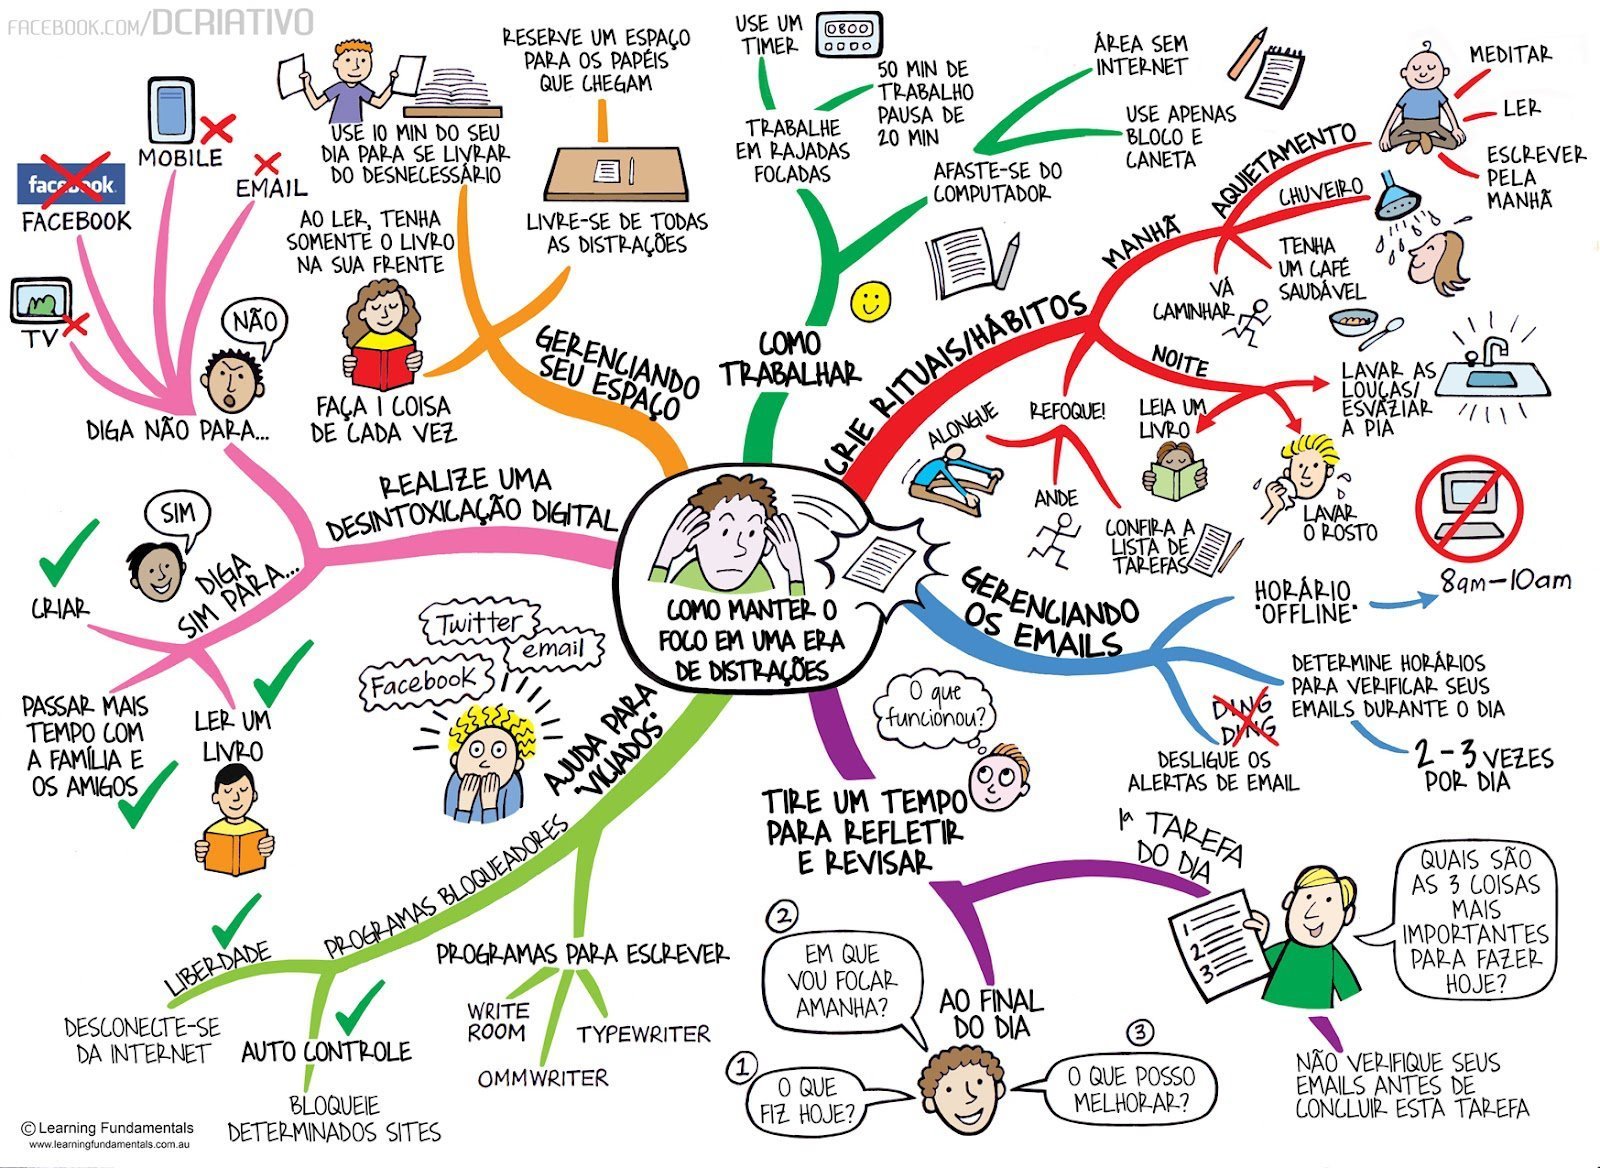 FACEBOOK.COM/DCRIATIVO
COMO MANTER O
FOCO EM UMA ERA
DE DISTRAÇÕES
CRIE RITUAIS/HÁBITOS
MANHÃ
AQUIETAMENTO
MEDITAR
LER
ESCREVER
PELA
MANHÃ
CHUVEIRO
TENHA
UM CAFÉ
SAUDÁVEL
VÁ
CAMINHAR
NOITE
LAVAR AS
LOUÇAS/
ESVAZIAR
A PIA
LEIA UM
LIVRO
LAVAR
O ROSTO
REFOQUE!
ALONGUE
ANDE
CONFIRA A
LISTA DE
TAREFAS
GERENCIANDO
OS EMAILS
HORÁRIO
"OFFLINE"
8am-10am
DETERMINE HORÁRIOS
PARA VERIFICAR SEUS
EMAILS DURANTE O DIA
2-3 VEZES
POR DIA
DING
DING
DESLIGUE OS
ALERTAS DE EMAIL
O que
funcionou?
TIRE UM TEMPO
PARA REFLETIR
E REVISAR
1ª TAREFA
DO DIA
1
2
3
QUAIS SÃO
AS 3 COISAS
MAIS
IMPORTANTES
PARA FAZER
HOJE?
NÃO VERIFIQUE SEUS
EMAILS ANTES DE
CONCLUIR ESTA TAREFA
AO FINAL
DO DIA
1
O QUE
FIZ HOJE?
2
EM QUE
VOU FOCAR
AMANHA?
3
O QUE POSSO
MELHORAR?
AJUDA PARA
"VICIADOS"
Twitter
email
Facebook
PROGRAMAS PARA ESCREVER
WRITE
ROOM
OMMWRITER
TYPEWRITER
PROGRAMAS BLOQUEADORES
LIBERDADE
DESCONECTE-SE
DA INTERNET
AUTO CONTROLE
BLOQUEIE
DETERMINADOS SITES
REALIZE UMA
DESINTOXICAÇÃO DIGITAL
DIGA
SIM PARA...
SIM
CRIAR
PASSAR MAIS
TEMPO COM
A FAMÍLIA E
OS AMIGOS
LER UM
LIVRO
DIGA NÃO PARA...
NÃO
TV
facebook
FACEBOOK
MOBILE
EMAIL
GERENCIANDO
SEU ESPAÇO
USE 10 MIN DO SEU
DIA PARA SE LIVRAR
DO DESNECESSÁRIO
AO LER, TENHA
SOMENTE O LIVRO
NA SUA FRENTE
FAÇA 1 COISA
DE CADA VEZ
RESERVE UM ESPAÇO
PARA OS PAPÉIS
QUE CHEGAM
LIVRE-SE DE TODAS
AS DISTRAÇÕES
COMO
TRABALHAR
TRABALHE
EM RAJADAS
FOCADAS
USE UM
TIMER
0800
50 MIN DE
TRABALHO
PAUSA DE
20 MIN
AFASTE-SE DO
COMPUTADOR
ÁREA SEM
INTERNET
USE APENAS
BLOCO E
CANETA
© Learning Fundamentals
www.learningfundamentals.com.au